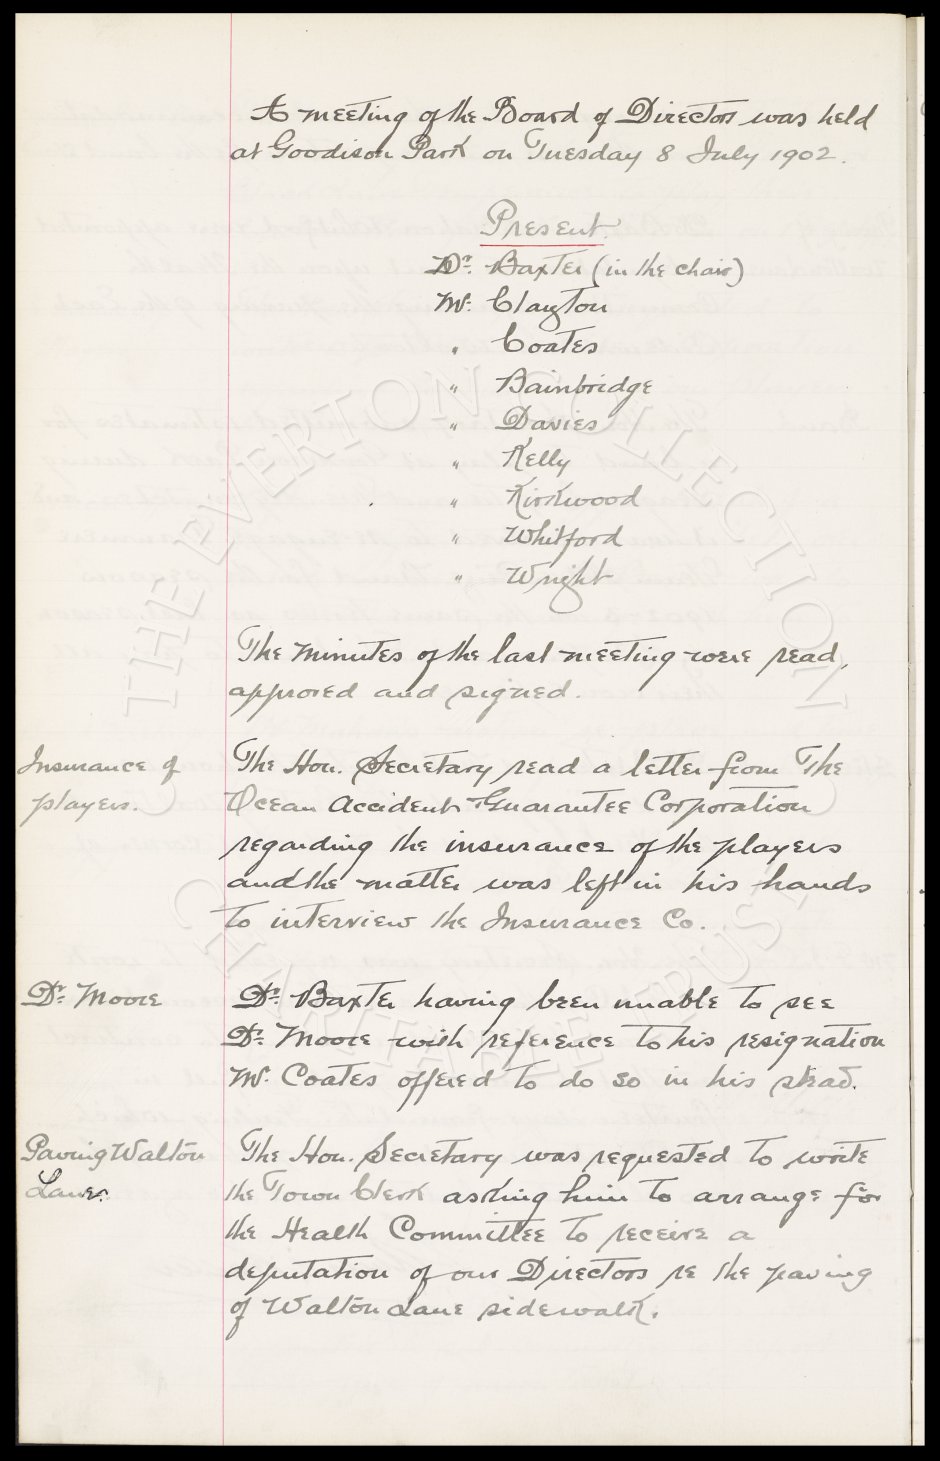 A meeting of the Board of Directors was held
at Goodison Park on Tuesday 8 July 1902.
Present
Dr. Baxter (in the chair)
Mr. Clayton
" Coates
" Bainbridge
" Davies
" Kelly
" Kirkwood
" Whitford
" Wright
The minutes of the last meeting were read,
approved and signed.
Insurance of
players.
The Hon. Secretary read a letter from The
Ocean Accident & Guarantee Corporation
regarding the insurance of the players
and the matter was left in his hands
to interview the Insurance Co.
Dr. Moore
Dr. Baxter having been unable to see
Dr. Moore with reference to his resignation
Mr. Coates offered to do so in his stead.
Paving Walton
Lane.
The Hon. Secretary was requested to write
the Town Clerk asking him to arrange for
the Health Committee to receive a
deputation of our Directors re the paving
of Walton Lane sidewalk.
THE EVERTON COLLECTION
CHARITABLE TRUST